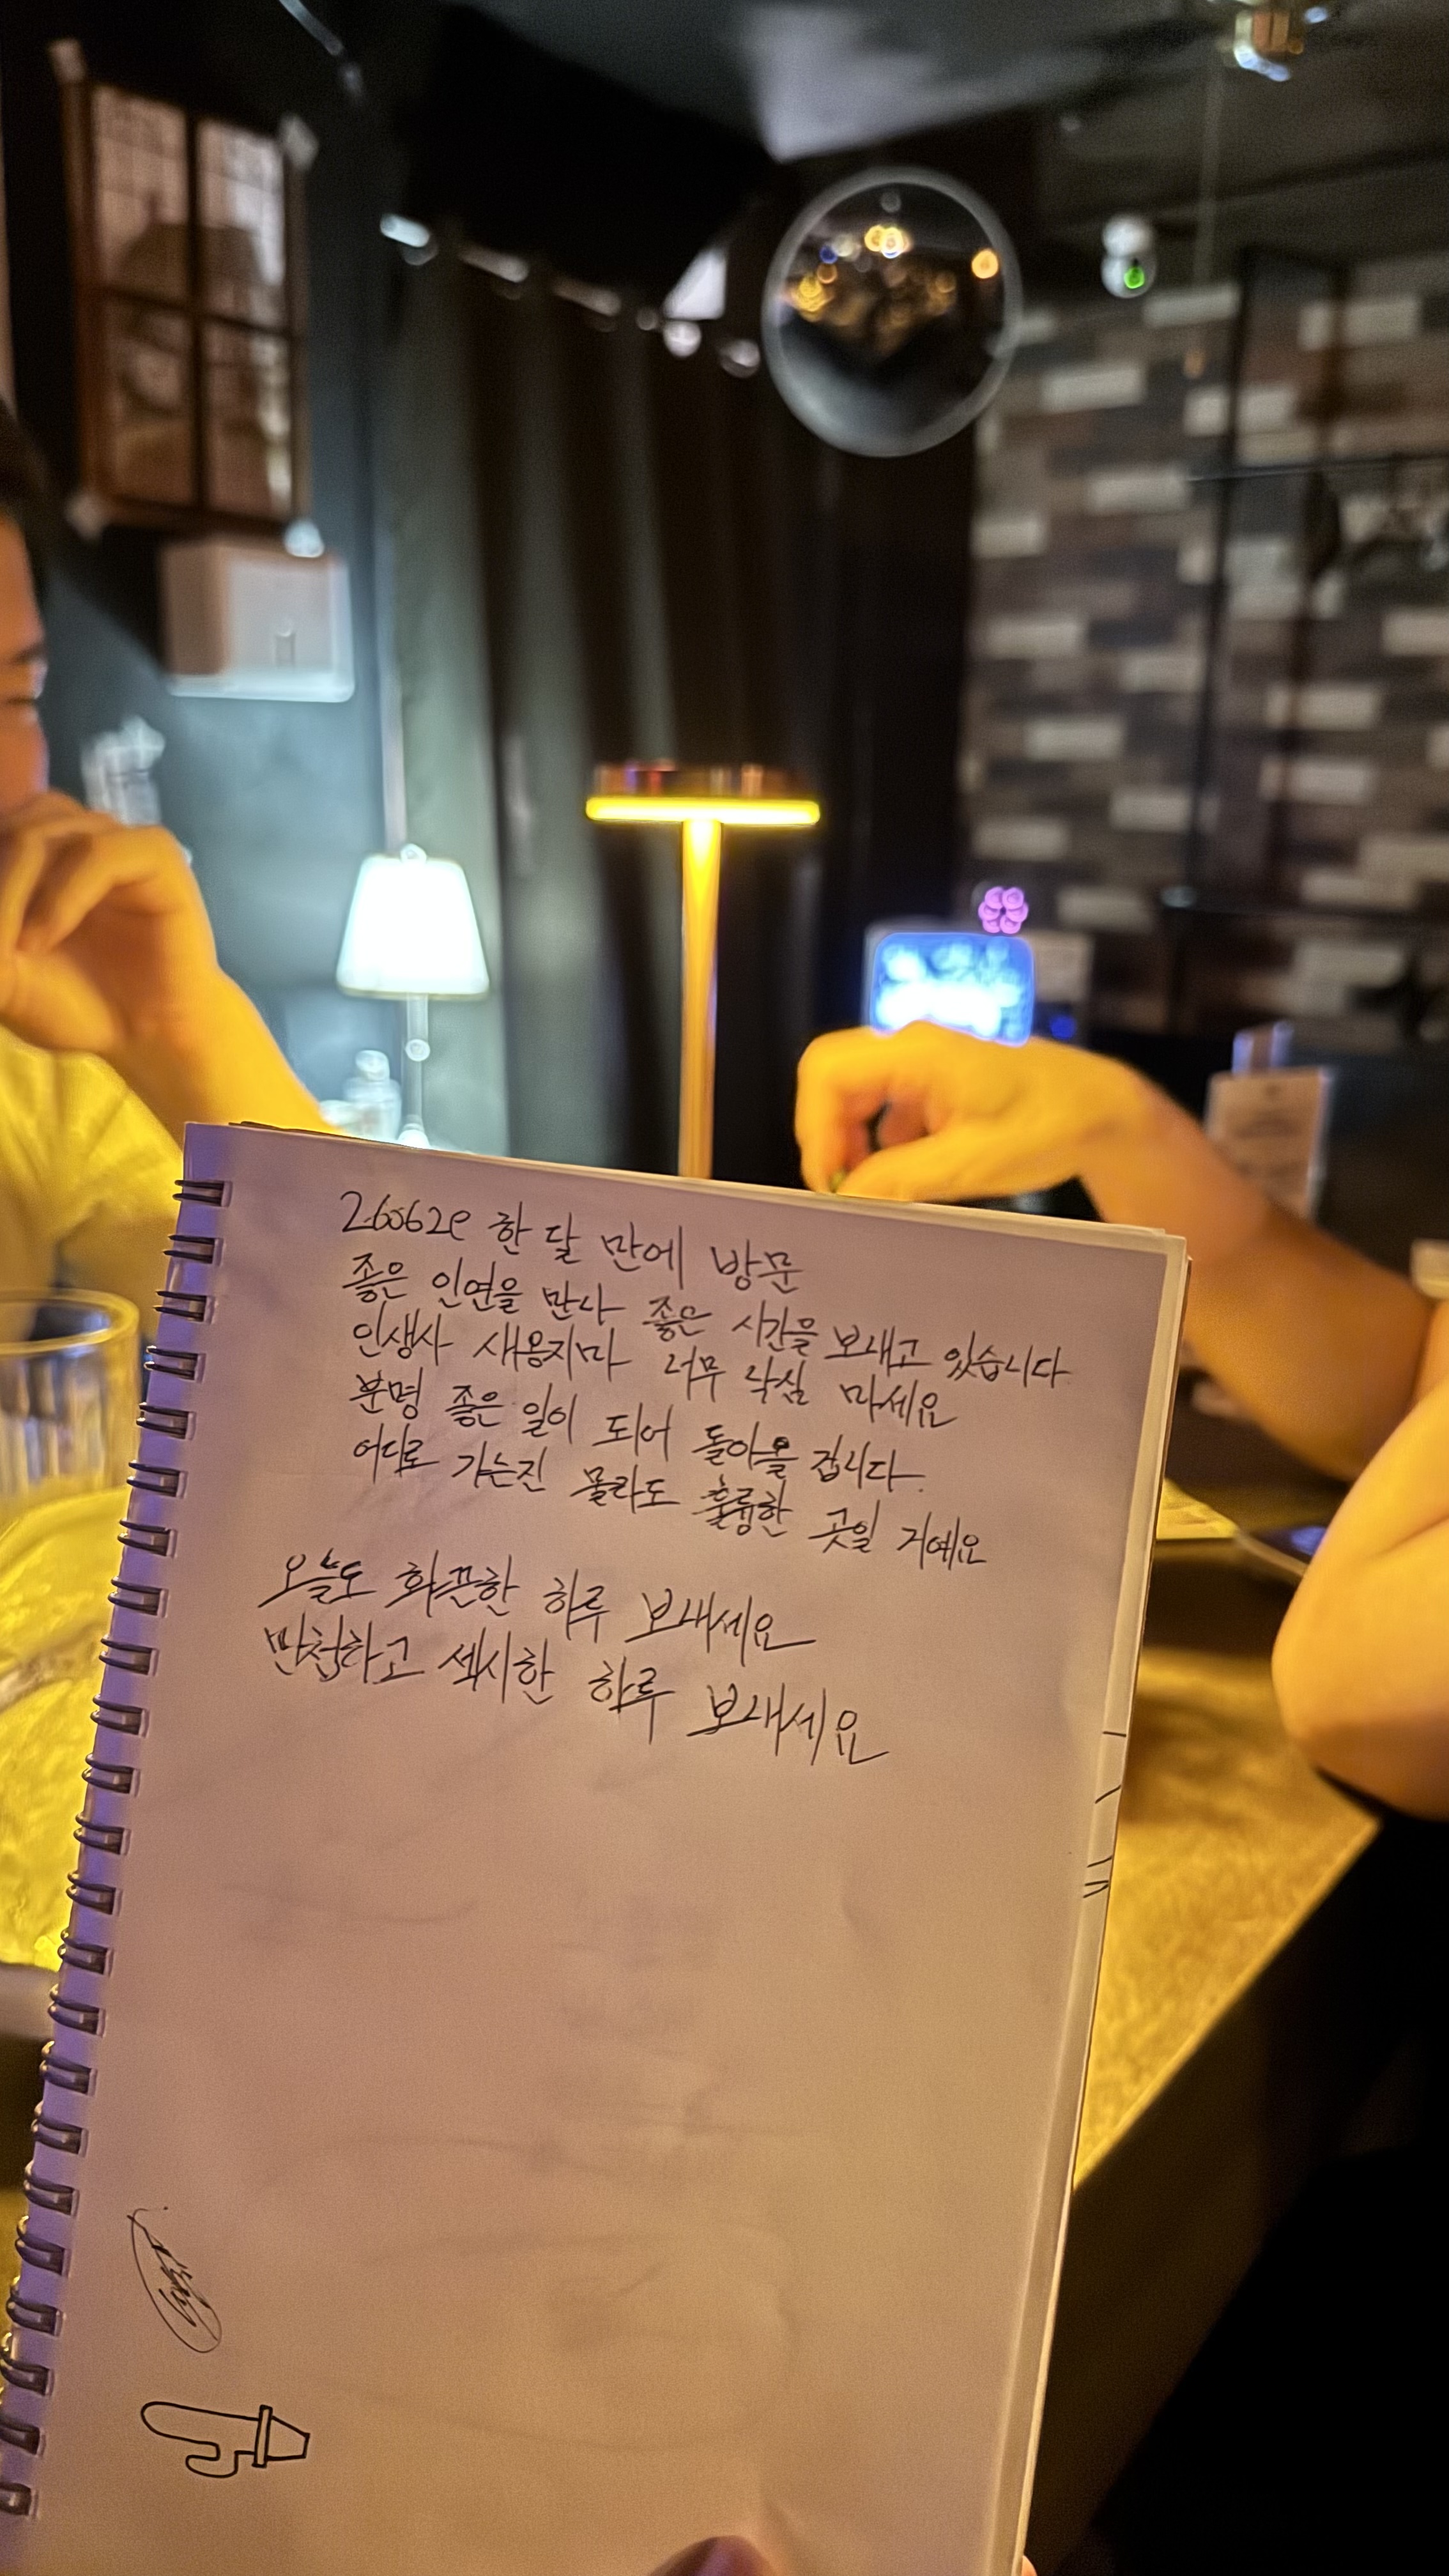 260620 한 달 만에 방문
좋은 인연을 만나 좋은 시간을 보내고 있습니다
인생사 새옹지마 너무 낙심 마세요
분명 좋은 일이 되어 돌아올 겁니다.
어디로 가는진 몰라도 훌륭한 곳일 거예요
오늘도 화끈한 하루 보내세요
만첩하고 섹시한 하루 보내세요